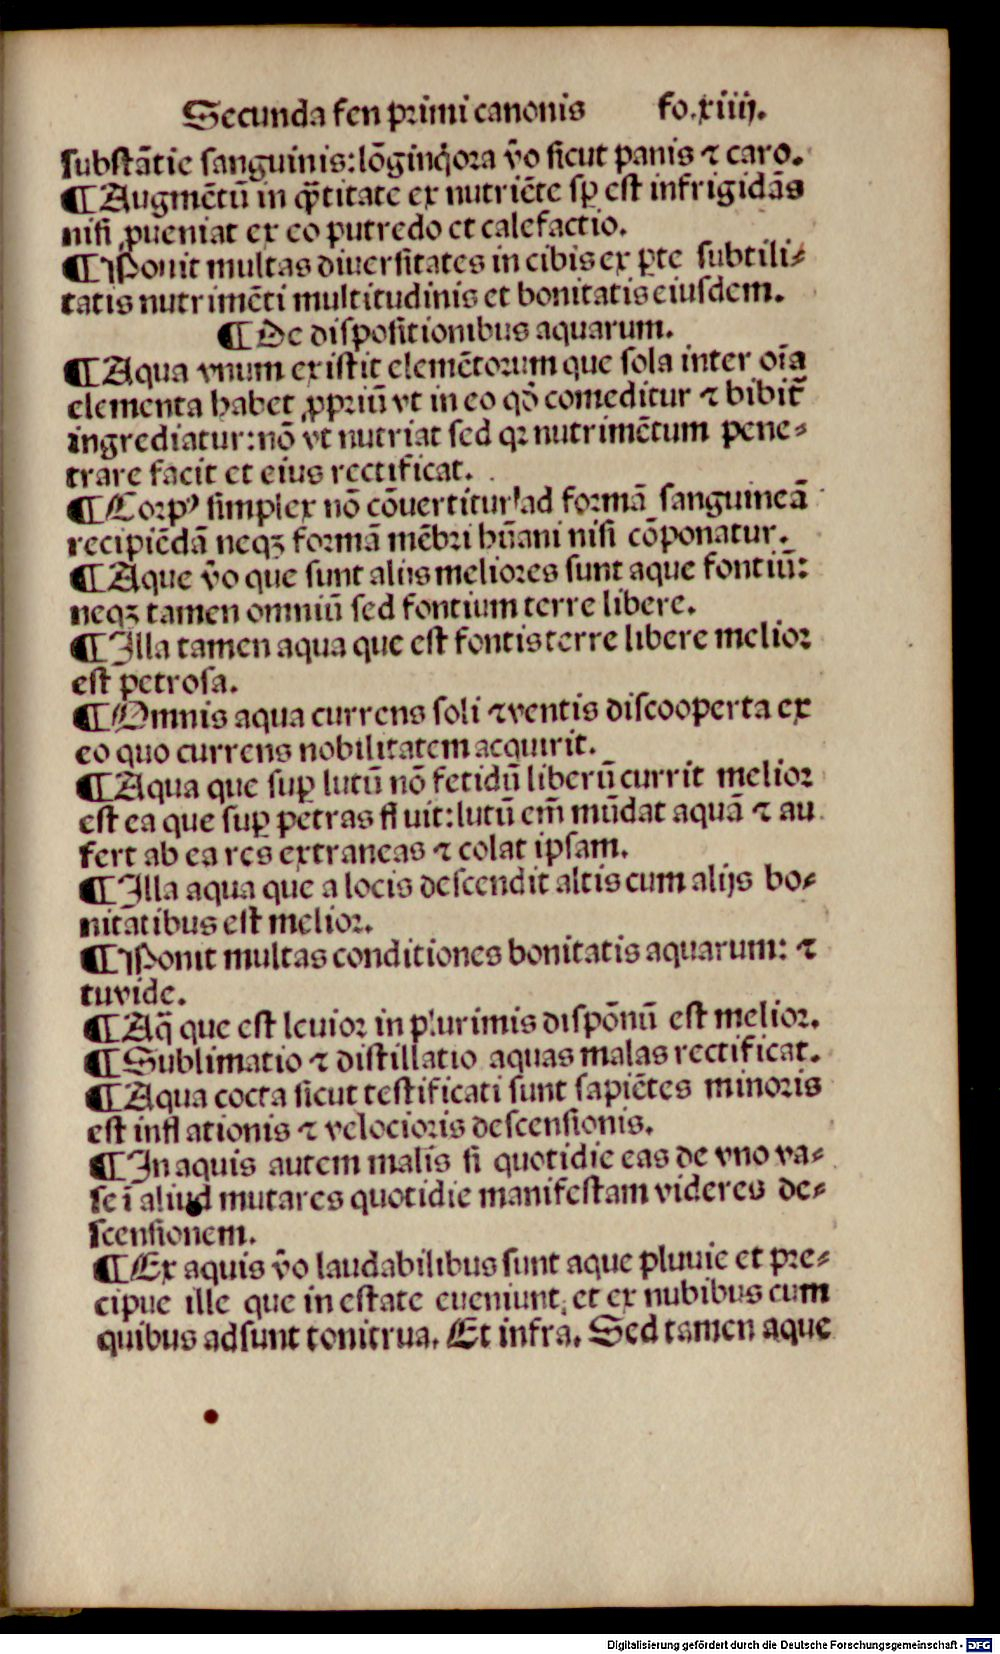 Secunda fen primi canonis fo.xiiij.
substãtie sanguinis: lõginq̃ora ṽo sicut panis ⁊ caro.
¶ Augmẽtũ in q̃titate ex nutriẽte sꝑ est infrigidãs
nisi ꝓueniat ex eo putredo et calefactio.
¶ Ponit multas diuersitates in cibis ex ꝑte subtili⸗
tatis nutrimẽti multitudinis et bonitatis eiusdem.
¶ De dispositionibus aquarum.
¶ Aqua vnum existit elemẽtorum que sola inter oĩa
elementa habet ꝓpriũ vt in eo qõ comeditur ⁊ bibit̃
ingrediatur: nõ vt nutriat sed qꝛ nutrimẽtum pene⸗
trare facit et eius rectificat.
¶ Corpꝰ simplex nõ cõuertitur ad formã sanguineã
recipiẽdã neqꝫ formã mẽbri hũani nisi cõponatur.
¶ Aque ṽo que sunt aliis meliores sunt aque fontiũ:
neqꝫ tamen omniũ sed fontium terre libere.
¶ Illa tamen aqua que est fontis terre libere melior
est petrosa.
¶ Omnis aqua currens soli ⁊ ventis discooperta ex
eo quo currens nobilitatem acquirit.
¶ Aqua que suꝑ lutũ nõ fetidũ liberũ currit melior
est ea que suꝑ petras fluit: lutũ em̃ mũdat aquã ⁊ au
fert ab ea res extraneas ⁊ colat ipsam.
¶ Illa aqua que a locis descendit altis cum alijs bo⸗
nitatibus est melior.
¶ Ponit multas conditiones bonitatis aquarum: ⁊
tu vide.
¶ Aq̃ que est leuior in plurimis dispõnũ est melior.
¶ Sublimatio ⁊ distillatio aquas malas rectificat.
¶ Aqua cocta sicut testificati sunt sapiẽtes minoris
est inflationis ⁊ velocioris descensionis.
¶ In aquis autem malis si quotidie eas de vno va⸗
se ĩ aliud mutares quotidie manifestam videres de⸗
scensionem.
¶ Ex aquis ṽo laudabilibus sunt aque pluuie et pre⸗
cipue ille que in estate eueniunt, et ex nubibus cum
quibus adsunt tonitrua. Et infra. Sed tamen aque
Digitalisierung gefördert durch die Deutsche Forschungsgemeinschaft - DFG